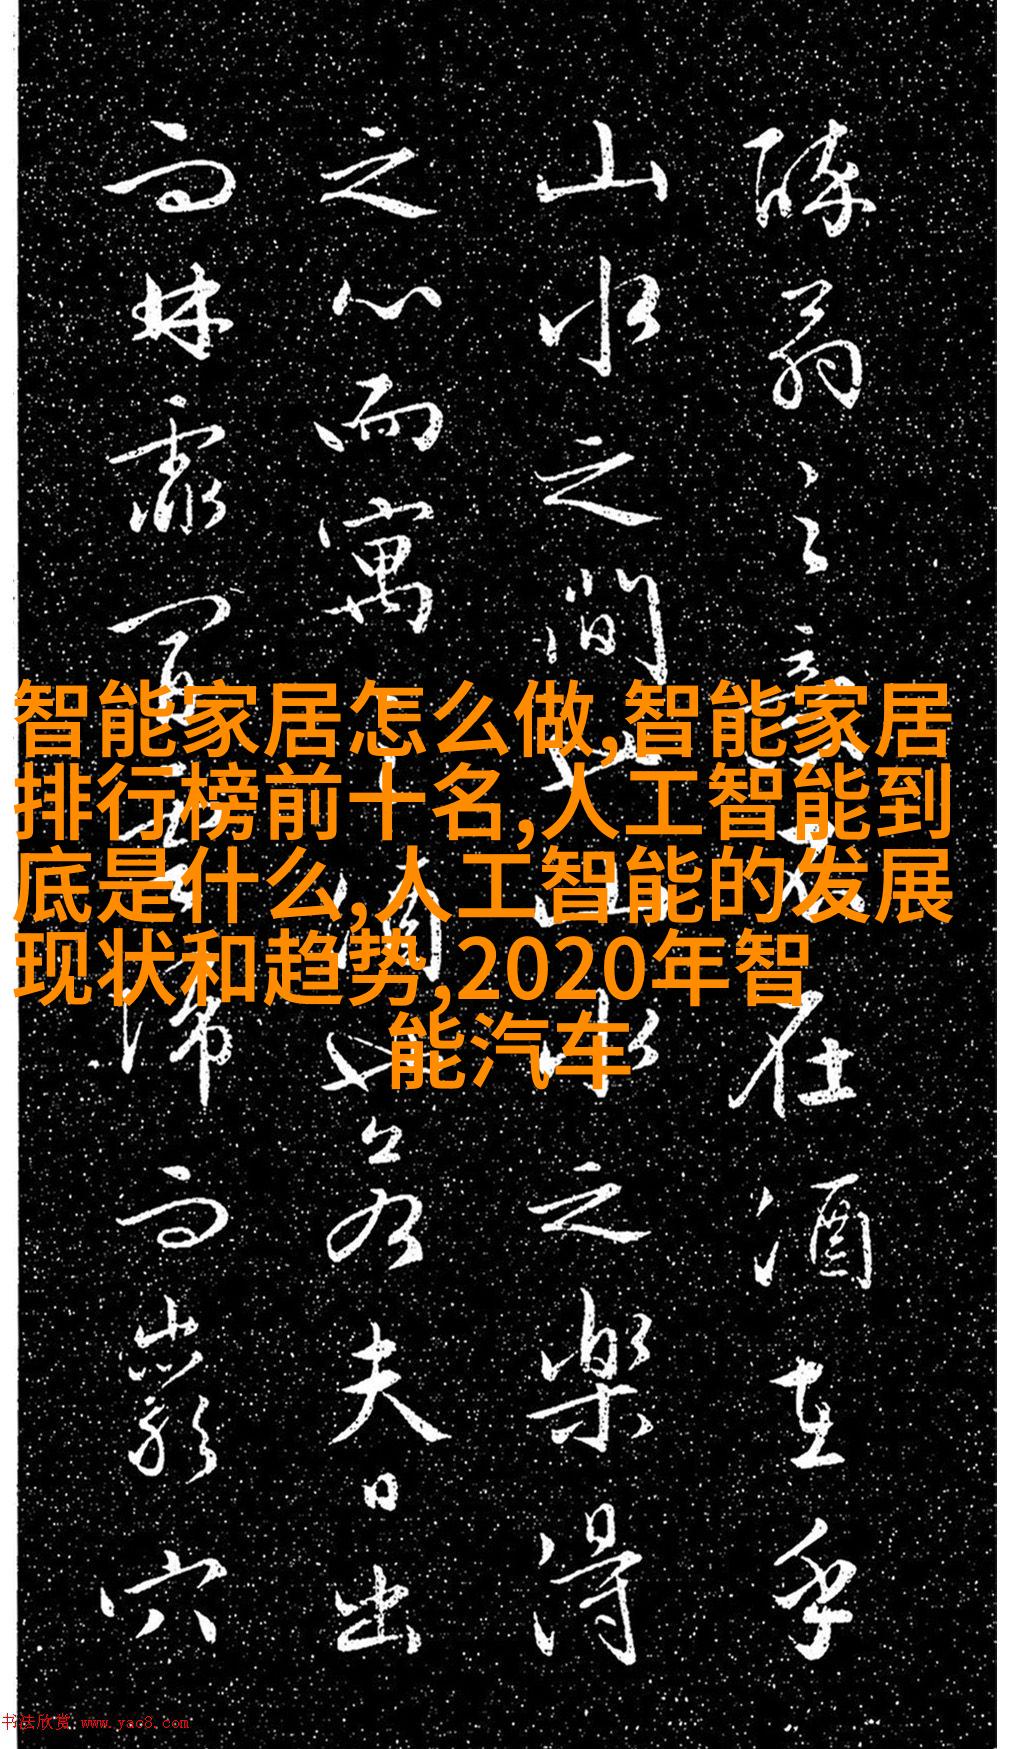 醉翁之意不在酒在乎
山水之間也山水之樂得
之心而寓之酒也若夫日出
而林霏開雲歸而巖穴
智能家居怎么做,智能家居
排行榜前十名,人工智能到
底是什么,人工智能的发展
现状和趋势,2020年智
能汽车
书法欣赏 www.yac8.com